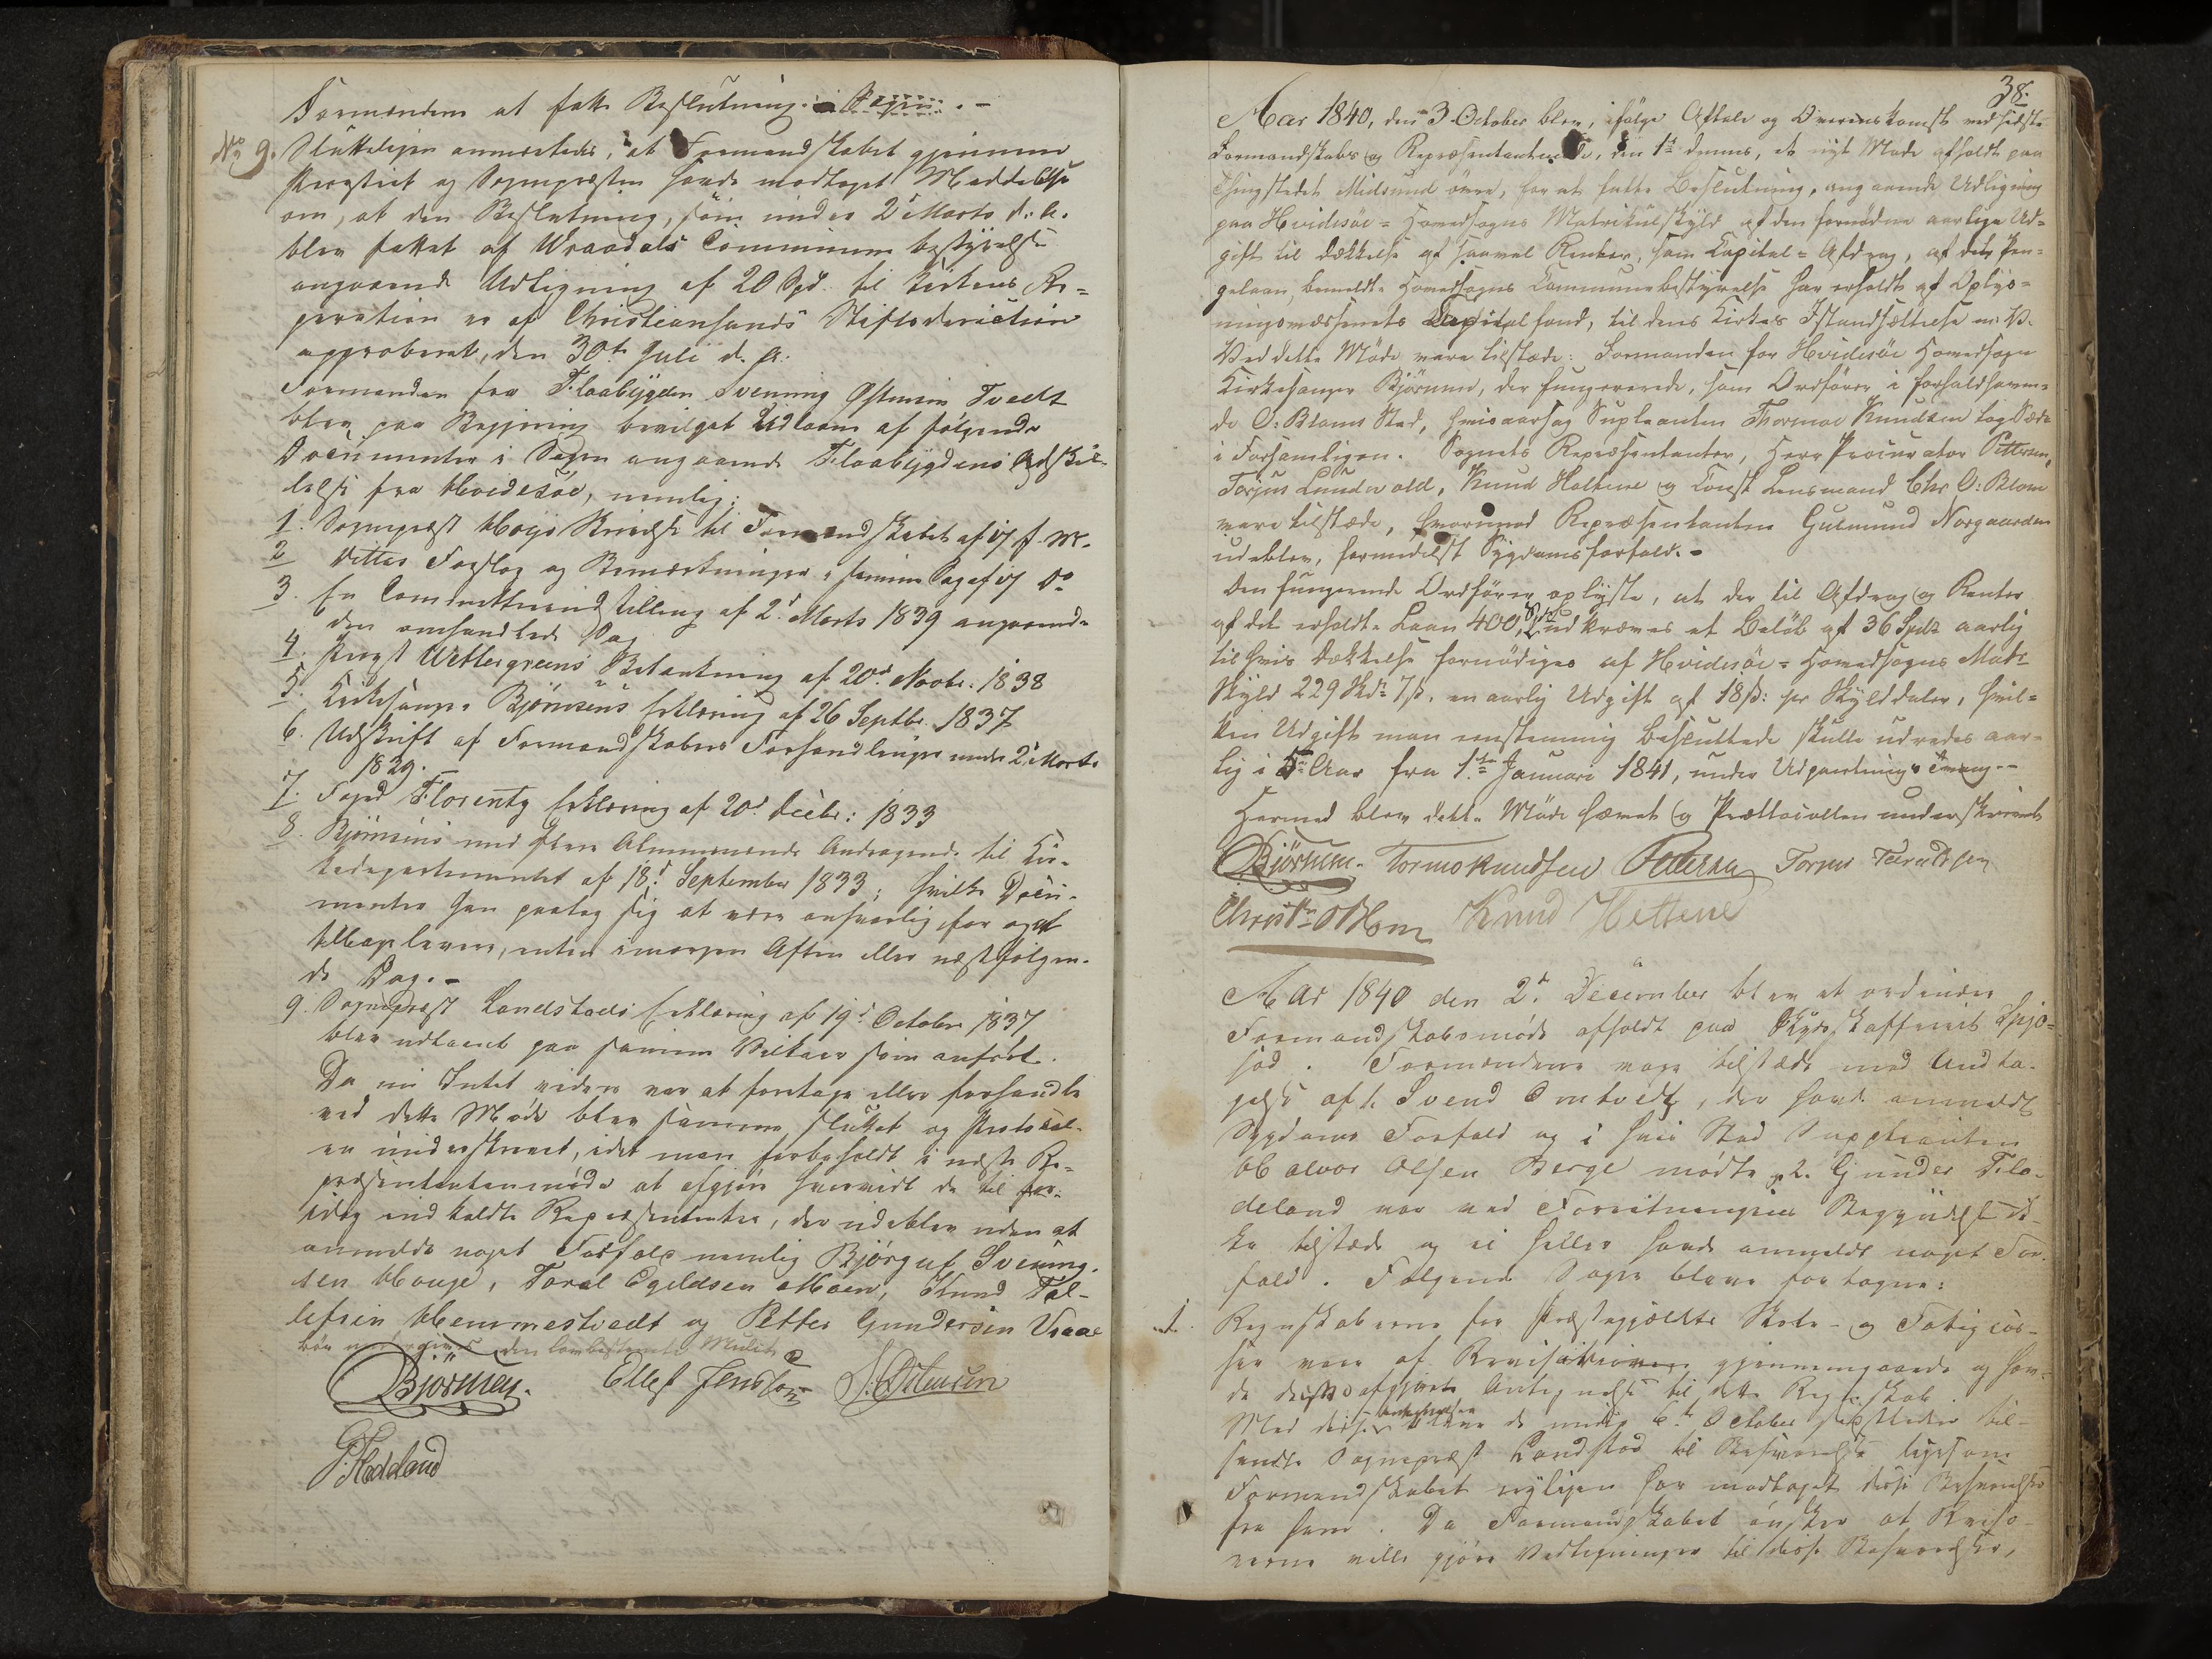 Formændene at fatte Beslutning i Sagen. –
No 9. Sluttelig anmærkedes, at Formandskabet gjennem
Provstiet og Sognepræsten havde modtaget Meddelelse
om, at den Beslutning, som under 2den Marts d. A.
blev fattet af Wraadals Communebestyrelse
angaaende Udligning af 20 Spd. til Kirkens Re=
paration er af Christiansands Stiftsdirection
approberet, den 30te Juli d. A.
Formanden fra Flaabygden Svenning Østensen Tvedt
blev paa Begjering bevilget Udlaan af følgende
Documenter i Sagen angaaende Flaabygdens Adskil-
lelse fra Hvidesøe, nemlig:
1. Sognepræst Skrivelse til Formandskabet af 17 f. M.
2 Dettes Forslag og Bemærkninger i samme Sag af 17 do
3. En Committeindstilling af 2d Marts 1839 angaaende
den omhandlede Sag
4. Provst Wettergreens Betænkning af 20d Novbr. 1838
5. Kirkesanger Bjørnsens Erklæring af 26 Septbr. 1837
6. Udskrift af Formandskabets Forhandlinger under 2 Marts
1839.
7. Foged Florentz Erklæring af 20d Decbr: 1833
8. Bjørnsens med flere Almuemænds Andragende til Kir-
kedepartementet af 18d September 1833; hvilke Docu-
menter han paatog sig at være ansvarlig for og at
tilbagelevere, enten imorgen Aften eller næstfølgen-
de Dag. –
9. Sognepræst Landstads Erklæring af 19d October 1837
blev udlaant paa samme Vilkaar som anført.
Da nu Intet videre var at foretage eller forhandle
ved dette Møde blev samme sluttet og Protocol-
len underskrevet, idet man forbeholdt i næste Re-
præsentantmøde at afgjøre hvorvidt de til
idag indkaldte Repræsentanter, der udeblev uden at
anmelde noget Forfald nemlig Bjørguf Svening-
sen Houge, Toral Egildsen Moen, Knud Tol-
lefsen Hemmestvedt og Petter Gundersen Vraae
bør den lovbestemte Mulct
Bjørnsen. Ellef Jensson S. Østensen
G. Fladeland
38.
Aar 1840, den 3 October blev, ifølge Aftale og Overenskomst ved sidste
Formandskabs og Repræsentantmøde, den 1ste dennes, et nyt Møde afholdt paa
Thingstedet Midsund øvre, for at fatte Beslutning, angaaende Udligning
paa Hvidesøe = Hovedsogns Matrikulskyld af den fornødne aarlige Ud=
gift til Dækkelse af saavel Renter, som Capital = Afdrag, af det Pen-
gelaan, bemeldte Hovedsogns Communebestyrelse har erholdt af Oplys=
ningsvæsenets Capitalfond, til dens Kirkes Istandsættelse m. V.
Ved dette Møde vare tilstæde: Formanden for Hvidesøe Hovedsogn
Kirkesanger Bjørnsen, der fungerede, som Ordfører i Forfaldhaven=
de O. Bloms Sted, hvisaarsag Supleanten Thormoe Knudsen tog Sæde
i Forsamlingen. Sognets Repræsentanter, Herr Procurator Pettersen,
Torjus Lundevold, Knud Haltene og Const Lensmand Chr O: Blom
vare tilstæde, hvorimod Repræsentanten Gudmund Norgaarden
udeblev, formedelst Sygdomsforfald. –
Den fungerende Ordfører oplyste, at der til Afdrag og Renter
af det erholdte Laan 400 Spd udkræves et Beløb af 36 Spdr aarlig
til hvis Dækkelse fornødiges af Hvidesøe = Hovedsogns Matr
Skyld 229 Skdr 7 ß, en aarlig Udgift af 18 ß: pr Skylddaler, hvil=
ken Udgift man eenstemmig besluttede skulle udredes aar-
lig i Aar fra 1ste Januari 1841, under Udpantnings Tvang. –
Hermed blev dette Møde hævet og Protocollen underskrevet
Bjørnsen. Tormo Knudsen Pettersen Torjus
Christn O Blom Knud Hettene
Aar 1840 den 2d December blev et ordinær
Formandskabsmøde afholdt paa Skydsskafferiet Spjo=
sod. Formændene vare tilstæde med Undta-
gelse af 1. Svend Omtvedt, der havde anmeldt
Sygdoms Forfald og i hvis Sted Suppleanten
Halvor Olsen Berge mødte, 2. Gunder Flade-
deland var ved Forretningens Begyndelse ik-
ke tilstæde og ei heller havde anmeldt noget For-
fald. Følgende Sager bleve foretagne:
1. Regnskaberne for Præstegjeldets Skole- og Fatigcas-
ser vare af Revisorerne gjennemgaaede og hav-
de disse afgivet Antegnelser til dette Regnskab
Med disse Antegnelser bleve de under 6te October sidstleden til-
sendte Sognepræst Landstad til Besvarelse ligesom
Formandskabet nyligen har modtaget disse Besvarelser
fra ham. Da Formandskabet ønsker at Reviso-
rerne ville gjøre Vedtegninger til disse Besvarelser,